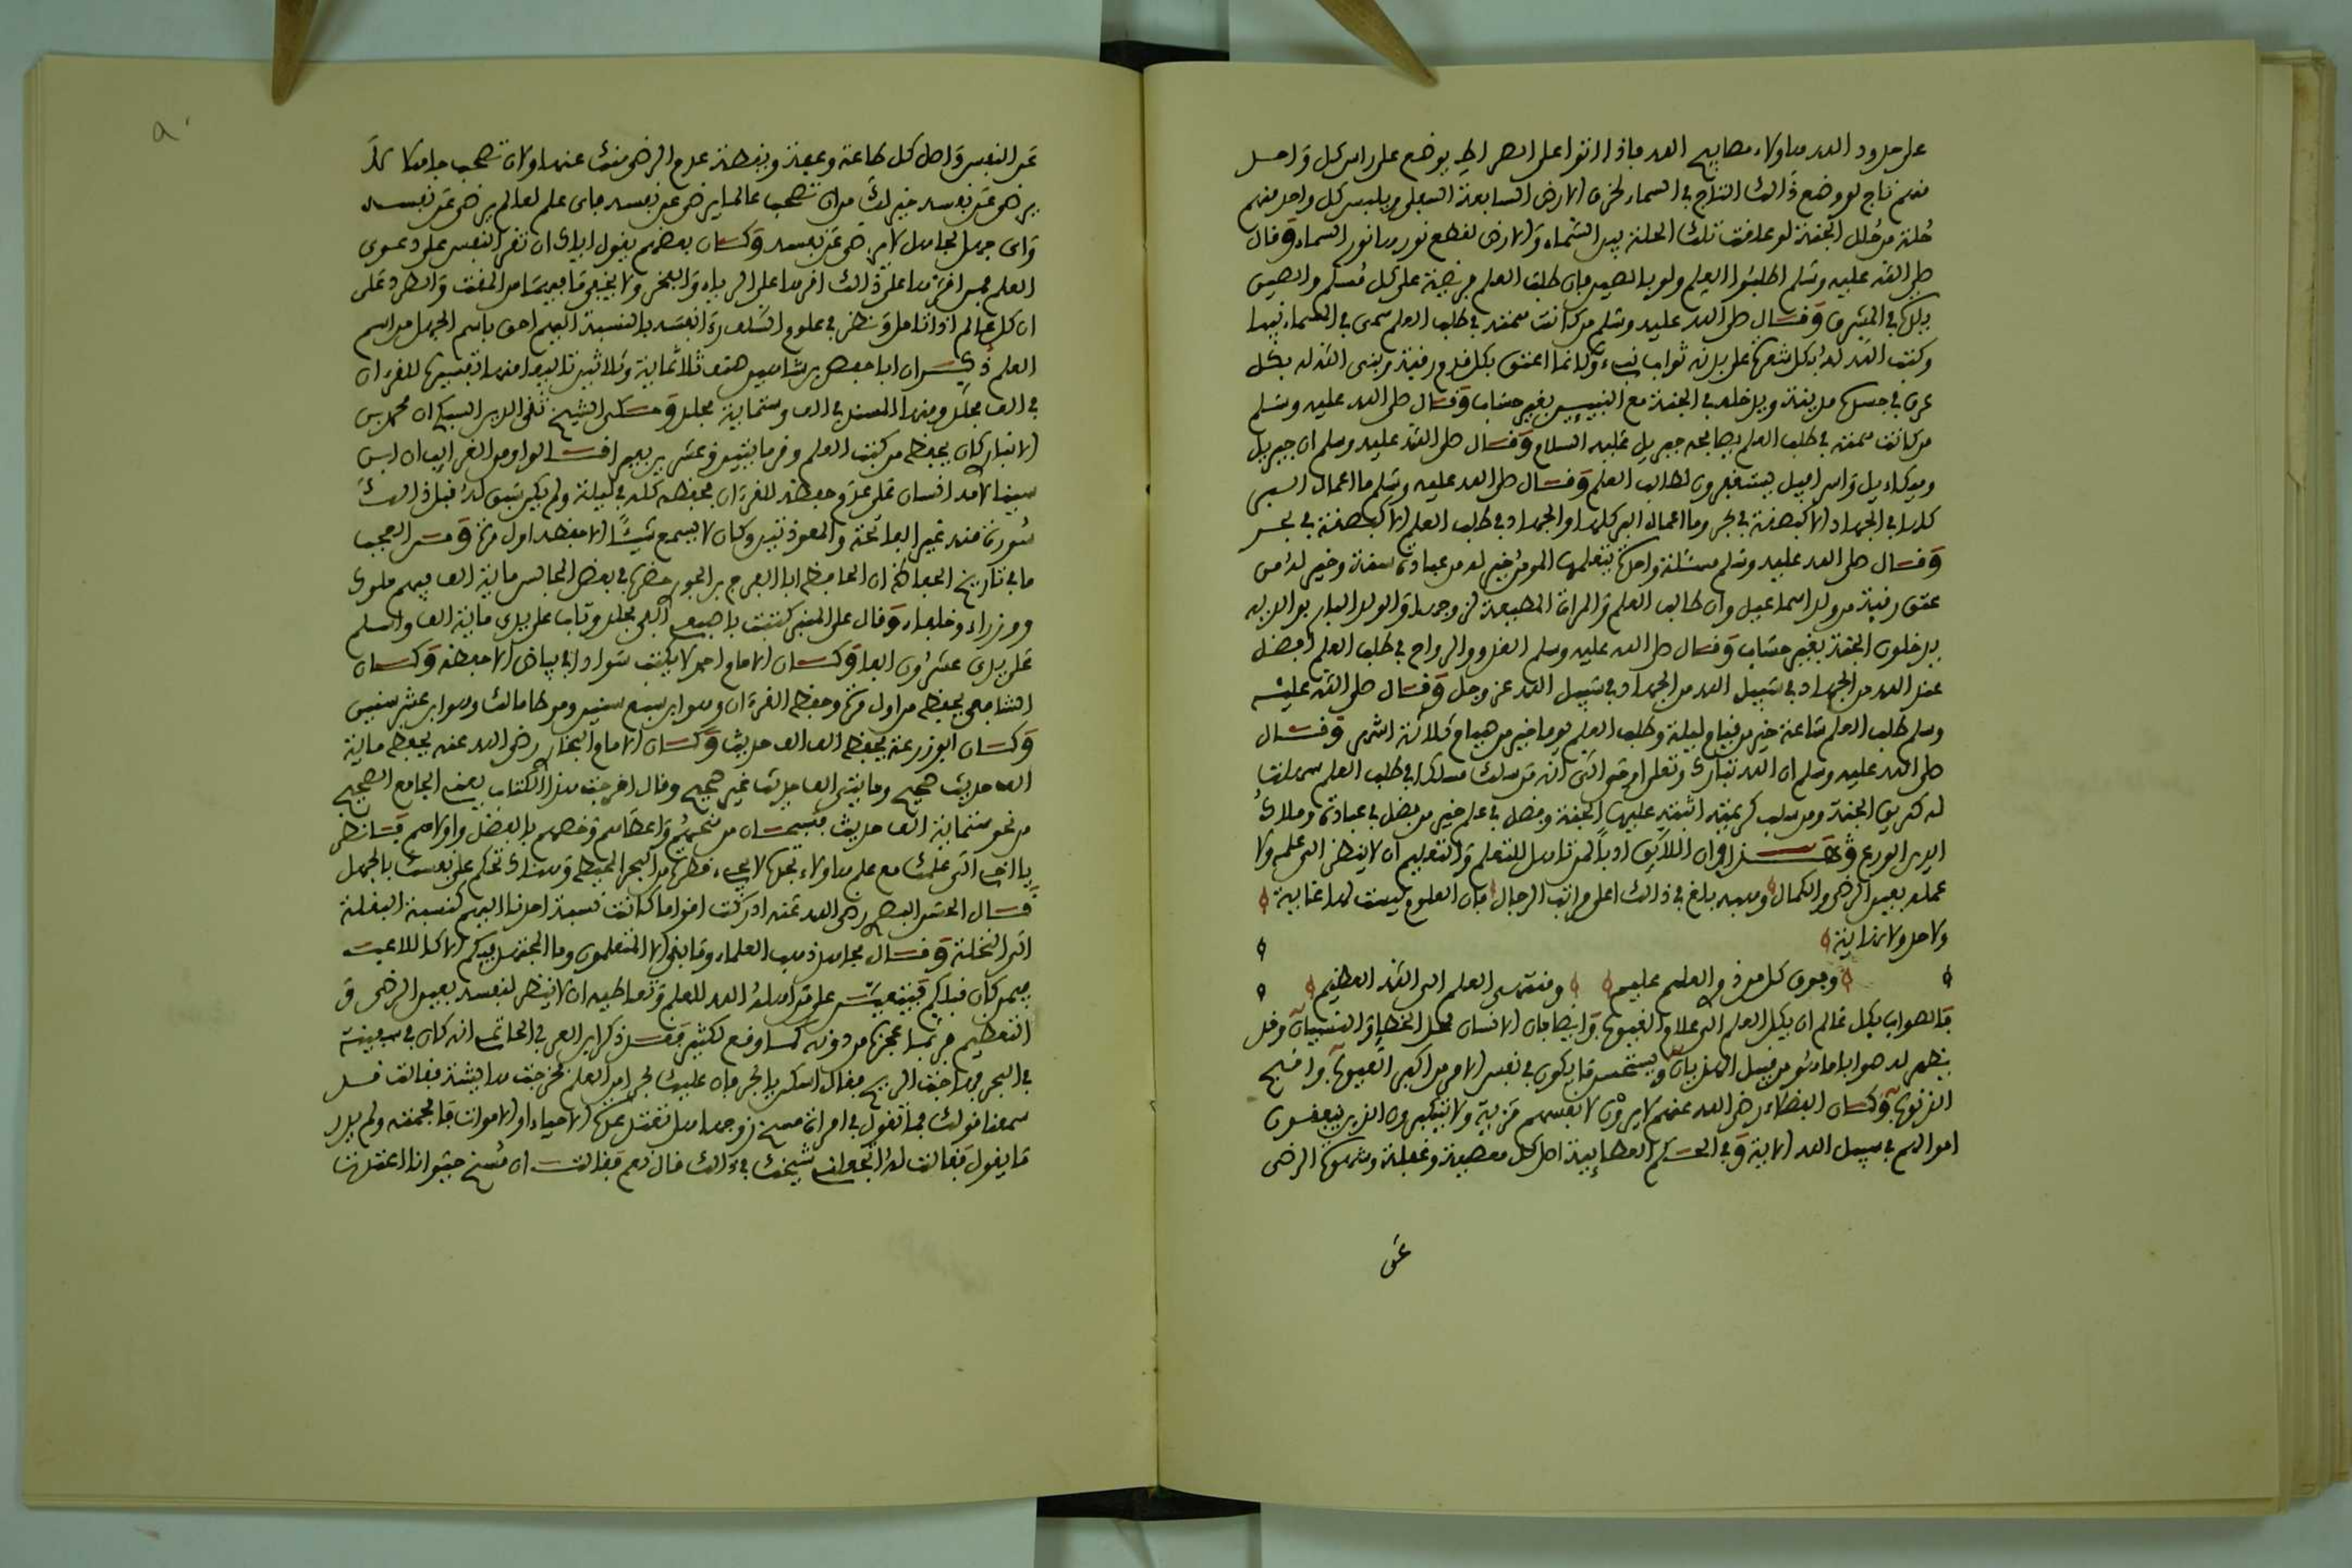 على حدود الله هاولاء مصابيح الله فاذا اتوا على الصراط يوضع على راس كل واحد
منهم تاج لو وضع ذالك التاج في السماء لخرق الارض السابعة السفلى ويلبس كل واحد منهم
حلة من حلل الجنة لو علقت تلك الحلة بين السماء والارض لقطع نورها نور السماء وقال
صلى الله عليه وسلم اطلبوا العلم ولو بالصين فان طلب العلم فريضة على كل مسلم والصين
بلدة في المشرق وقال صلى الله عليه وسلم من كانت همته في طلب العلم سمي في السماء نبيا
وكتب الله له بكل شعرة على بدنه ثواب نبيء وكانما اعتق بكل قدم رقبة وبنى الله له بكل
عرق في جسده مدينة ويدخله في الجنة مع النبيين بغير حساب وقال صلى الله عليه وسلم
من كانت همته في طلب العلم يصافحه جبريل عليه السلام وقال صلى الله عليه وسلم ان جبريل
وميكاءيل واسرافيل يستغفرون لطالب العلم وقال صلى الله عليه وسلم ما اعمال البر
كلها في الجهاد الا كبصقة في بحر وما اعمال البر كلها والجهاد في طلب العلم الا كبصقة في بحر
وقال صلى الله عليه وسلم مسئلة واحدة يتعلمها المومن خير له من عبادة سنة وخير له من
عتق رقبة من ولد اسماعيل وان طالب العلم والمراة المطيعة لزوجها والولد البار بوالديه
يدخلون الجنة بغير حساب وقال صلى الله عليه وسلم الغدو والرواح في طلب العلم افضل
عند الله من الجهاد في سبيل الله من الجهاد في سبيل الله عز وجل وقال صلى الله عليه
وسلم طلب العلم ساعة خير من قيام ليلة وطلب العلم يوما خير من صيام ثلاثة اشهر وقال
صلى الله عليه وسلم ان الله تبارك وتعلى اوحى الي انه من سلك مسلكا في طلب العلم سهلت
له طريق الجنة ومن سلبت كريمتيه اثبته عليهما الجنة وفضل في علم خير من فضل في عبادة وملاك
الدين الورع وهذا وان اللايق ادبا لمن تاهل للتعلم والتعليم ان لا ينظر الى علمه ولا
عمله بعين الرضى والكمال وهبه بلغ في ذالك اعلى مراتب الرجال فان العلوم ليست لها غاية
ولا حد ولا نهاية
وفوق كل ذي علم عليم ومنتهى العلم الى الله العظيم
فالصواب بكل عالم ان يكل العلم الى علام الغيوب وايضا فان الانسان محل الخطإ والنسيان وقد
يظهر له صوابا ما هو من قبيل الهذيان ويستحسن ما يكون في نفس الامر من اكبر العيوب وافبح
الذنوب وكان الفضلاء رضي الله عنهم لا يرون لانفسهم مزية ولا يتكبرون الذين ينفقون
اموالهم في سبيل الله الاية وفي الحكم العطائية اصل كل معصية وغفلة وشهوة الرضى
عن
عن النفس واصل كل طاعة وعفة ويقظة عدم الرضى منك عنها ولان تصحب جاهلا لا
يرضى عن نفسه خير لك من ان تصحب عالما يرضى عن نفسه فاى علم لعالم يرضى عن نفسه
واى جهل لجاهل لا يرضى عن نفسه وكان بعضهم يقول اياك ان تقر النفس على دعوى
ان كل عالم اذا تامل ونظر في علوم السلف راى نفسه بالنسبة اليهم احق باسم الجهل من اسم
العلم ذكر ان ابا حفص بن شاهين صنف ثلاثماية وثلاثين تاليفا منها تفسيره للقرءان
في الف مجلد ومنها المسند في الف وستماية مجلد وحكى الشيخ تقى الدين السبكي ان محمد بن
الانباري كان يحفظ من كتب العلم وقر مايتين وعشرين بعيرا قالوا ومن الغرايب ان ابن
سينا لامه انسان على عدم حفظه للقرءان فحفظه كله في ليلة ولم يكن سبق له قبل ذالك
سورة منه غير الفاتحة والمعوذتين وكان لا يسمع شيئا الا حفظه اول مرة ومن العجب
ما في تاريخ الحفاظ ان الحافظ ابا الفرج بن الجوزي حضره في بعض المجالس ماية الف فيهم ملوك
ووزراء وخلفاء وقال على المنبر كتبت باصبعي الفي مجلد وتاب على يدي ماية الف واسلم
على يدي عشرون الفا وكان الامام احمد لا يكتب سوادا في بياض الا حفظه وكان
الشافعي يحفظ من اول مرة وحفظ القرءان وهو ابن سبع سنين وموطا مالك وهو ابن عشر سنين
وكان ابو زرعة يحفظ الف الف حديث وكان الامام البخاري رضي الله عنه يحفظ ماية
الف حديث صحيح ومايتي الف حديث غير صحيح وقال اخرجت هذا الكتاب يعني الجامع الصحيح
من نحو ستماية الف حديث فسبحان من منحهم واعطاهم وخصهم بالفضل واولاهم فانظر
يا اخي اين علمك مع علم هاولاء تجده لا يجيء قطرة من البحر المحيط وهناك تحكم على نفسك بالجهل
قال الحسن البصري رضي الله عنه ادركت اقواما كانت نسبة احدنا اليهم كنسبة البقلة
الى النخلة وقال مجاهد ذهب العلماء وما بقي الا المتعلمون وما المجتهد فيكم الا كاللاعب
فيمن كان قبلكم فيتعين على من اهله الله للعلم وتعاطيه ان لا ينظر لنفسه بعين الرضى و
التعظيم فربما عجز من دونه كما وقع لكثير فقد ذكر ابن العربي في الحاتمي انه كان في سفينة
في البحر فهاجت الريح فقال اسكن يا بحر فان عليك بحرا من العلم فخرجت هايشة فقالت قد
سمعنا قولك فما تقول في امراة مسخ زوجها هل تعتد عدة الاحياء او الاموات فافحمته ولم يدر
ما يقول فقالت له اتجعلني شيختك في ذالك قال نعم فقالت ان مسخ حيوانا اعتدت